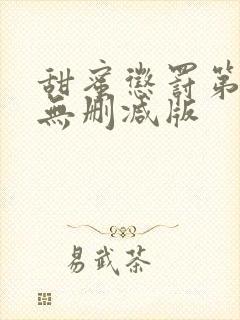 甜蜜懲罰第
無刪減版
易武茶